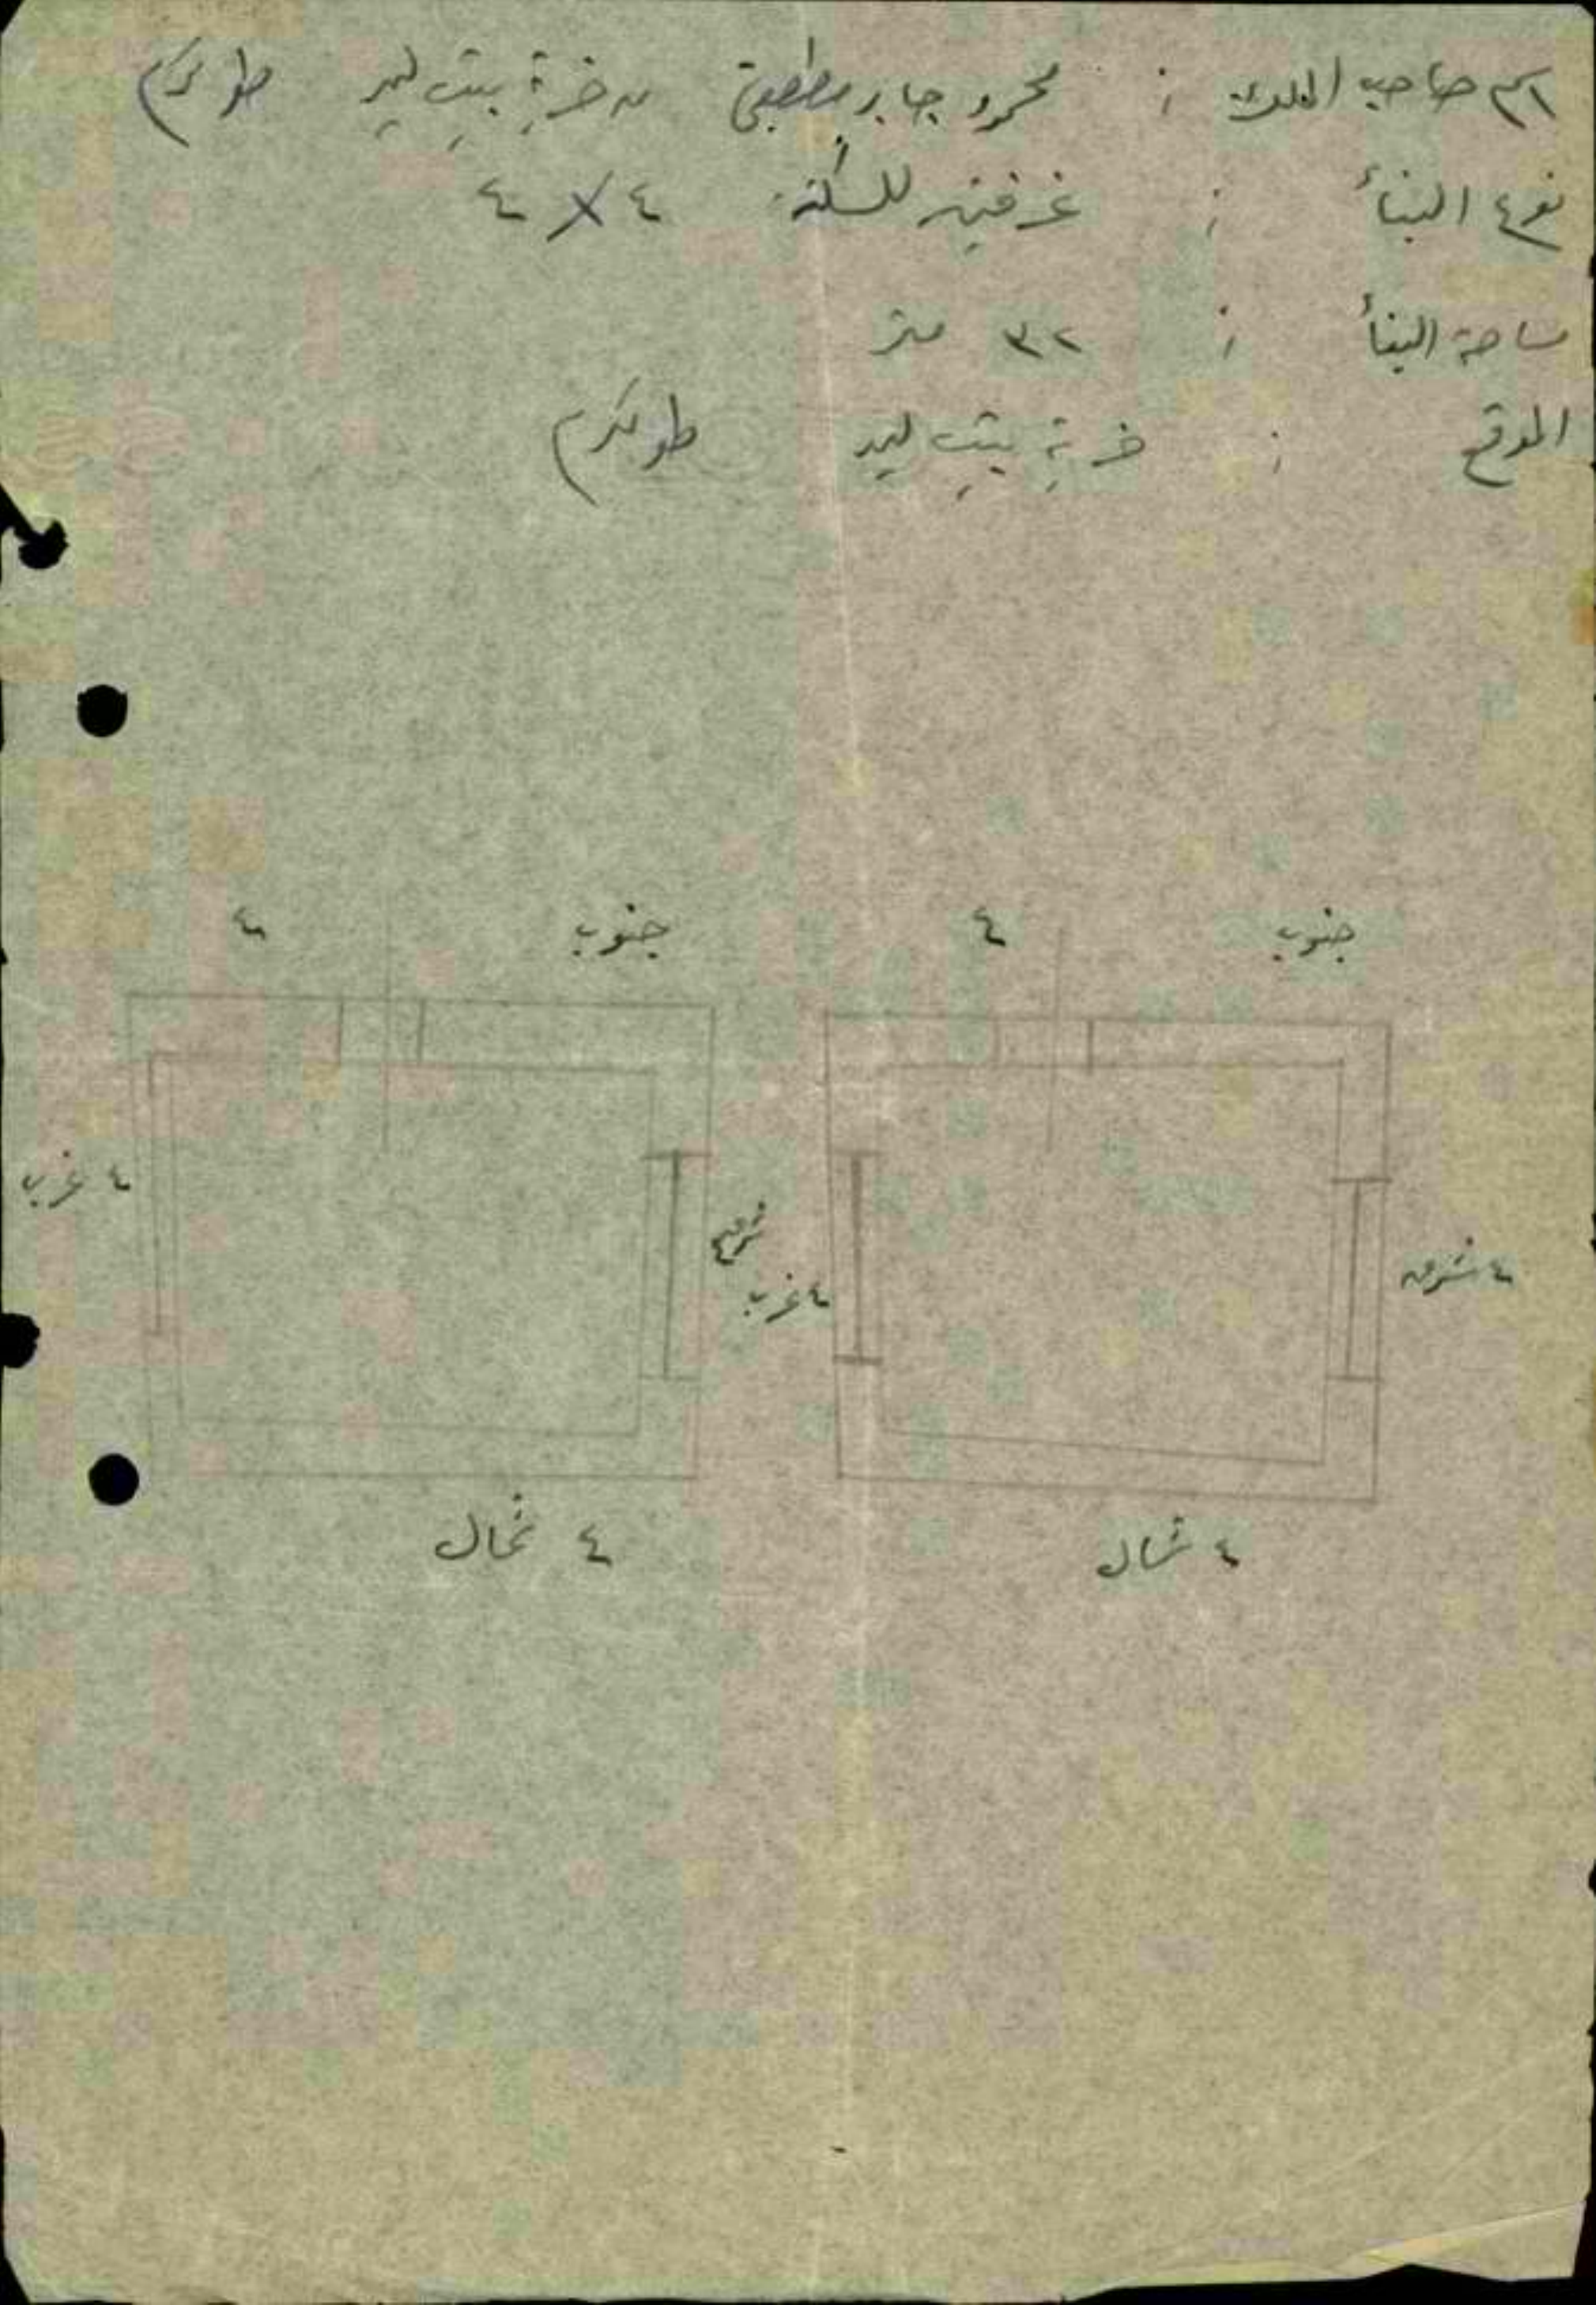 اسم صاحب الملك : محمود جابر من خربة بيت ليد طولكرم
نوع البناء : غرفتين للسكن ٤ × ٤
مساحة البناء : ٣٢ متر
الموقع : خربة بيت ليد طولكرم
جنوب ٤
جنوب ٤
٤ شرق
٤ غرب
شرق ٤
٤ غرب
٤ شمال
٤ شمال